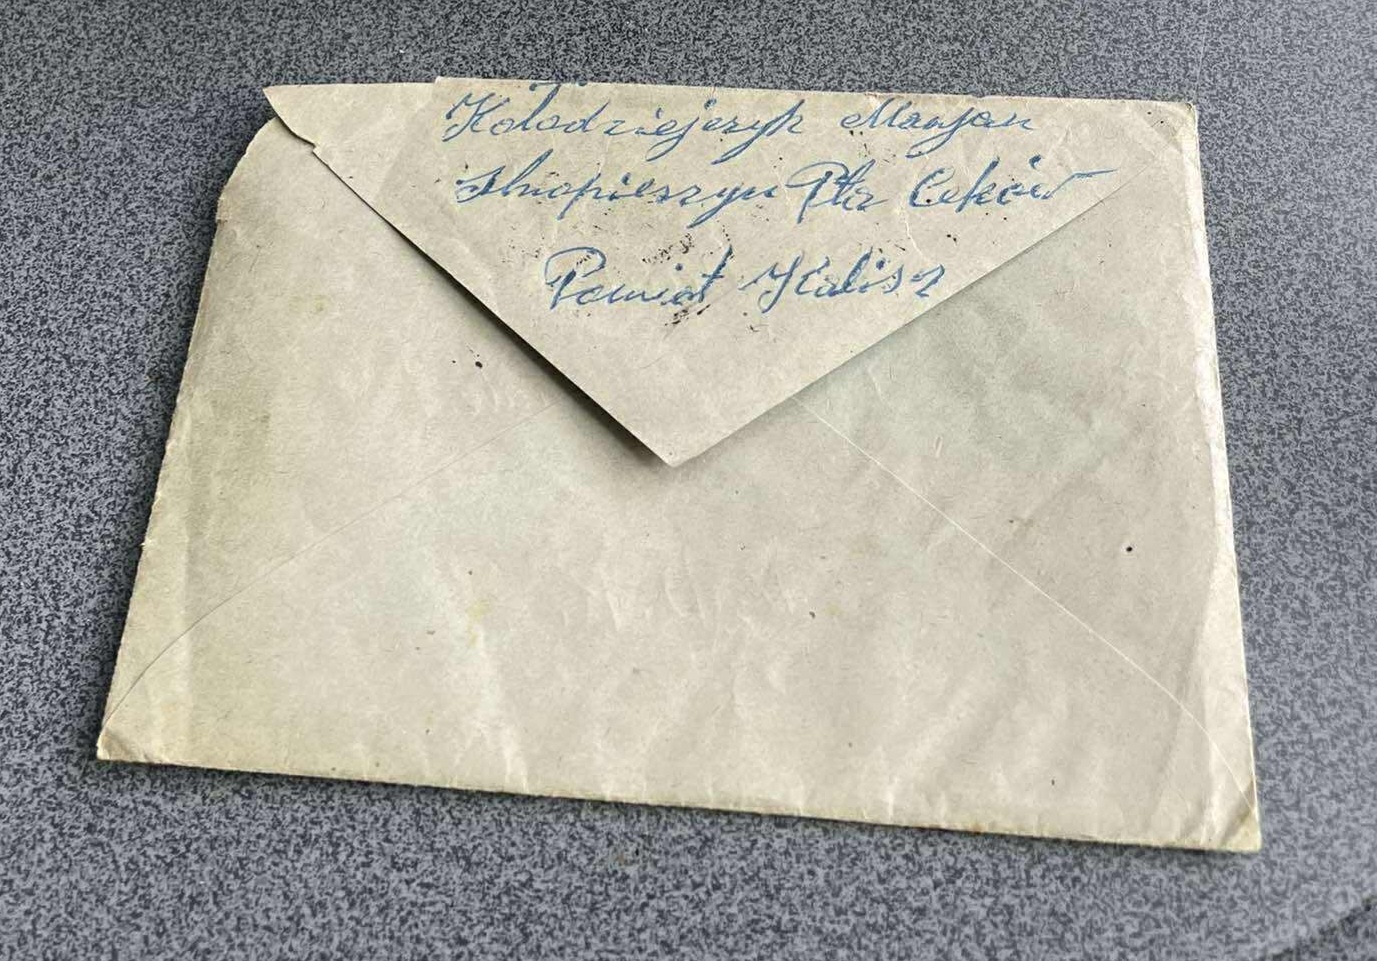 Kołodziejczyk Marjan
Pta Ceków
Powiat Kalisz